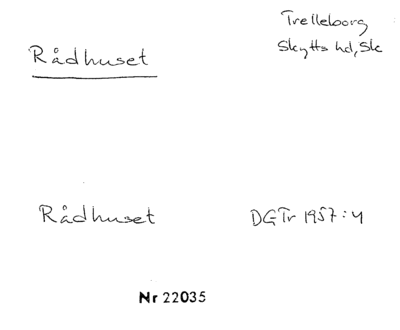 Trelleborg
Skytts hd, Sk
Rådhuset
Rådhuset DGTr 1957:4
Nr 22035